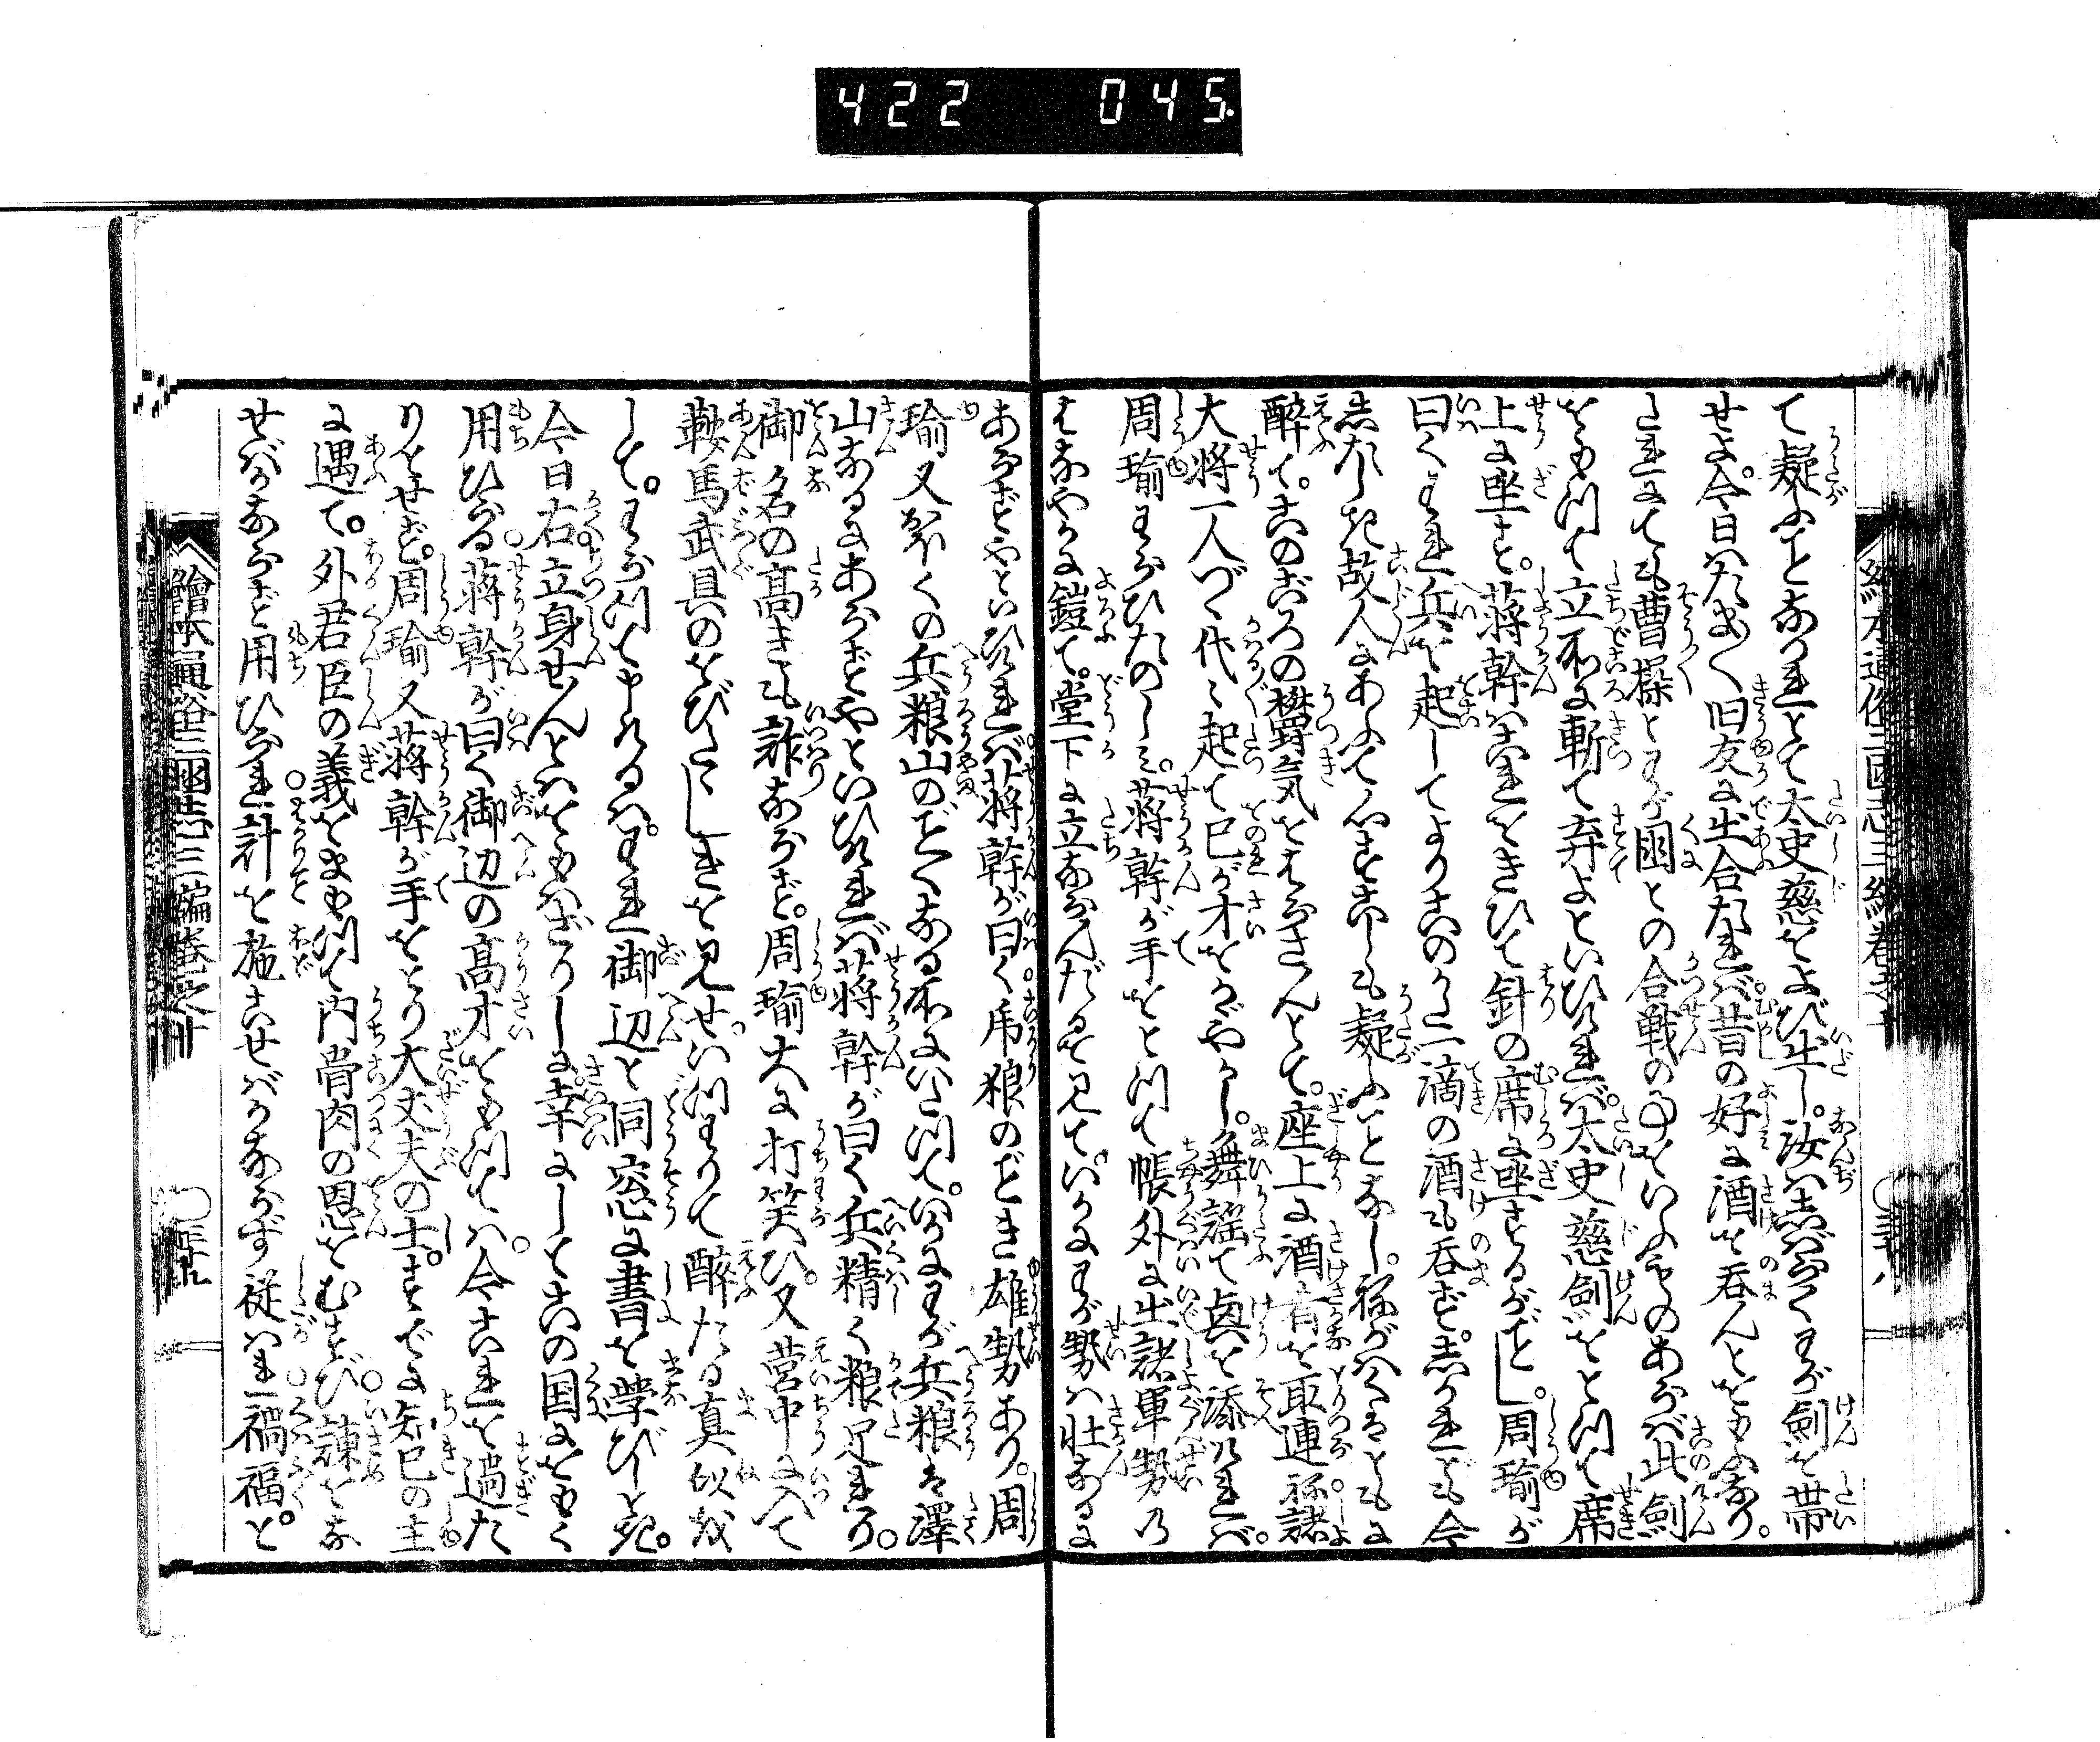 422 045.
て疑ふことなかれとて太史慈をよび出し。汝はしばらくわが剣を帯
せよ。今日はたま〱旧友に出合たれば。昔の好に酒を呑んとをもふなり。
これにても曹操とわが国との合戦の事をいふものあらば此剣
をもつて立所に斬て弃よといひければ。太史慈剣をとつて席
上に坐す。蒋幹はこれをきひて針の席に坐するがごとし。周瑜が
曰くわれ兵を起してよりこのかた一滴の酒も呑ず。しかれども今
したしき故人にあふて心すこしも疑ふことなし。ねがはくはともに
醉て。このごろの欝気をはらさんとて。座上に酒肴を取連ね諸
大将一人づゝ代々起て己が才をかゞやかし。舞謡て興を添ければ。
周瑜わらひたのしみ。蒋幹が手をとつて帳外に出諸軍勢の
はなやかに鎧て。堂下に立ならんだるを見て。いかにわが勢は壮なるに
あらずやといひければ。蒋幹が曰く。虎狼のごとき雄勢あり。周
瑜又おほくの兵粮山のごとくなる所にいたつて。いかにわが兵粮は澤
山なるにあらずやといひければ。蒋幹が曰く兵精く粮足れり。
御名の高きも詐ならず。周瑜大に打笑ひ。又営中に入て
鞍馬武具のをびたゝしきを見せ。いつわりて醉たる真似を
して。わらつて申けるは。われ御辺と同窓に書を学びしとき。
今日右立身せんとはをもはざりしに。幸にしてこの国にをもく
用ひらる。蒋幹が曰く御辺の高才をもつては。今これを過た
りとせず。周瑜又蒋幹が手をとり大丈夫の士。すでに知己の主
に遇て。外君臣の義をまもつて内骨肉の恩をむすび。諫をな
せばかならず用ひられ計を施こせばかならず従はれ禍福を
繪本通俗三國志三編巻之十